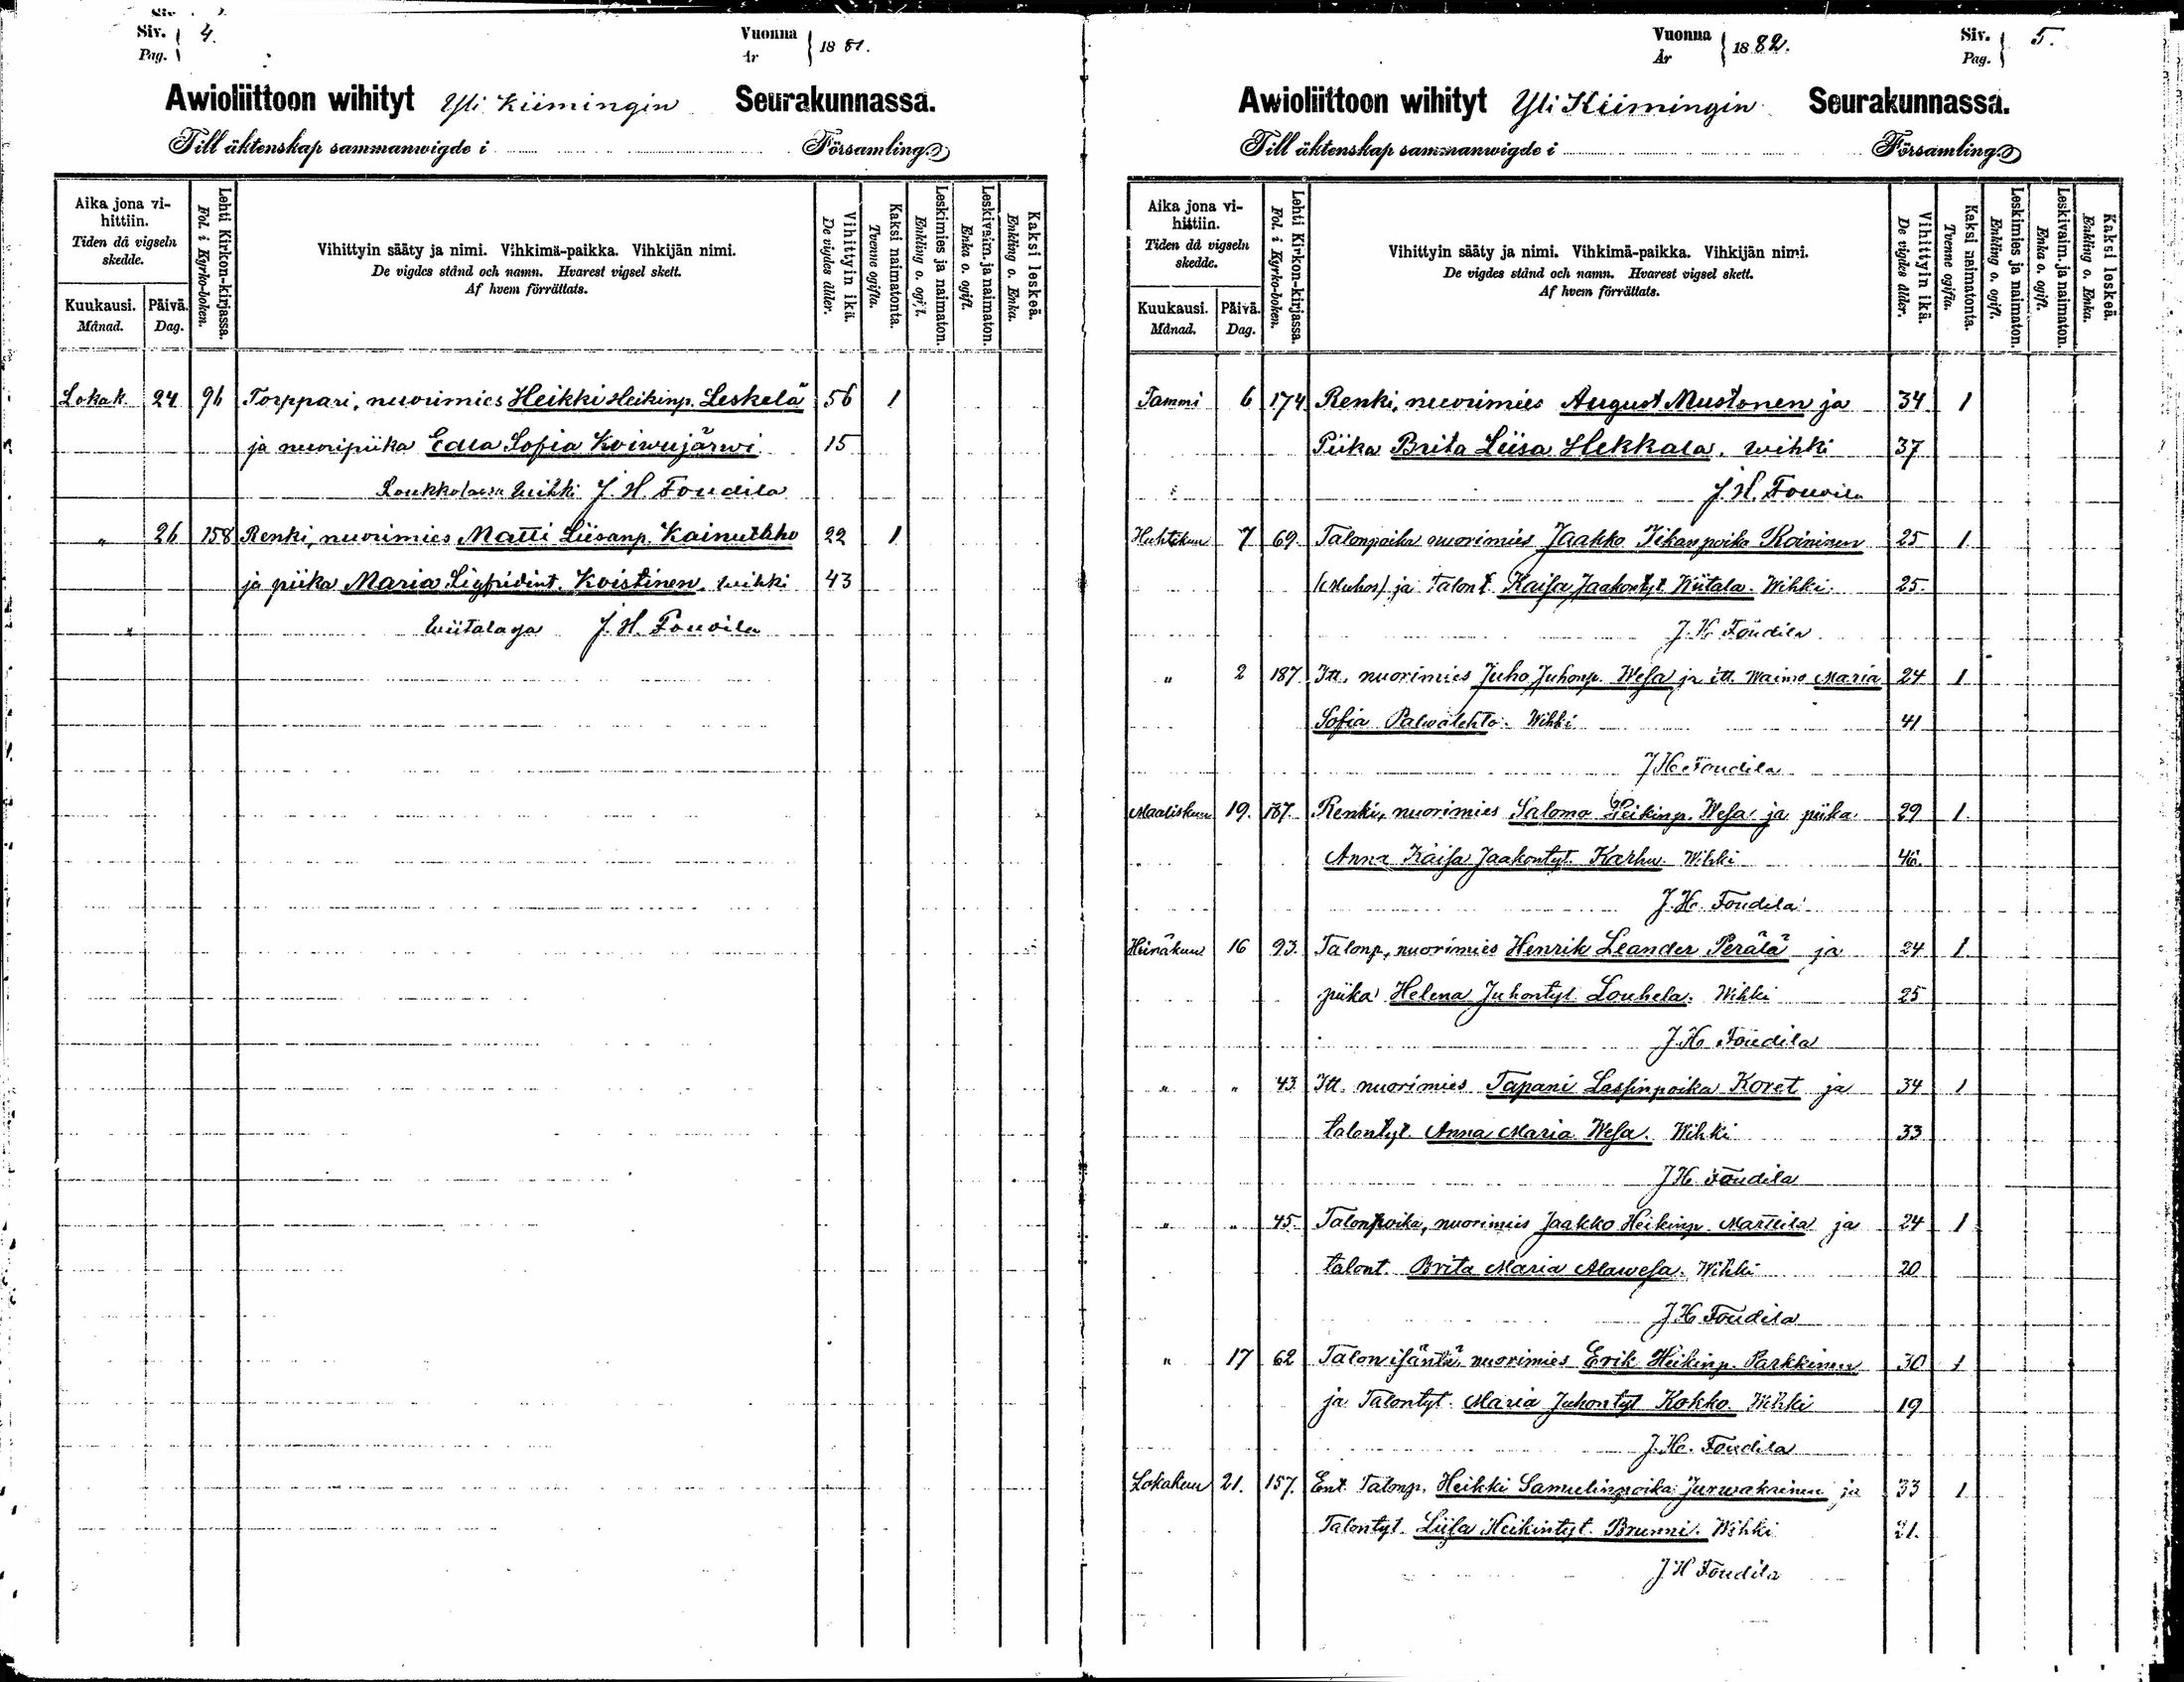 Siv. 4.
Pag.
Vuonna 1881.
År
Awioliittoon wihityt Yli Kiimingin Seurakunnassa.
Till äktenskap sammanwigde i Församling.
Aika jona vihittiin.
Tiden då vigseln skedde.
Kuukausi.
Månad.
Päivä.
Dag.
Lehti Kirkon-kirjassa.
Fol. i Kyrko-boken.
Vihittyin sääty ja nimi. Vihkimä-paikka. Vihkijän nimi.
De vigdes stånd och namn. Hvarest vigsel skett.
Af hvem förrättats.
Vihittyin ikä.
De vigdes ålder.
Kaksi naimatonta.
Tvenne ogifta.
Leskimies ja naimaton.
Enkling o. ogift.
Leskivaim. ja naimaton.
Enka o. ogift.
Kaksi leskeä.
Enkling o. Enka.
Lokak. 24 96 Torppari, nuorimies Heikki Heikinp. Leskelä 56 1
ja nuoripiika Edla Sofia Koivujärwi 15
wihki J. H. Foudila
" 26 158 Renki, nuorimies Matti Liisanp. 22 1
ja piika Maria Sigfridint. Koistinen. wihki 43
J. H. Foudila
Vuonna 1882.
År
Siv. 5.
Pag.
Awioliittoon wihityt Yli Kiimingin Seurakunnassa.
Till äktenskap sammanwigde i Församling.
Aika jona vihittiin.
Tiden då vigseln skedde.
Kuukausi.
Månad.
Päivä.
Dag.
Lehti Kirkon-kirjassa.
Fol. i Kyrko-boken.
Vihittyin sääty ja nimi. Vihkimä-paikka. Vihkijän nimi.
De vigdes stånd och namn. Hvarest vigsel skett.
Af hvem förrättats.
Vihittyin ikä.
De vigdes ålder.
Kaksi naimatonta.
Tvenne ogifta.
Leskimies ja naimaton.
Enkling o. ogift.
Leskivaim. ja naimaton.
Enka o. ogift.
Kaksi leskeä.
Enkling o. Enka.
Tammi 6 174 Renki, nuorimies August Mustonen ja 34 1
Piika Brita Liisa Hekkala. wihki 37
J. H. Foudila
Huhtikuu 7 69 Talonpoika nuorimies Jaakko Iikanpoika Koininen 25 1
(Muhos) ja Talont. Kaisa Jaakontyt. Kiitala. Wihki 25.
J. H. Foudila
" 2 187 Itt. nuorimies Juho Juhonp. Wesa ja itt. waimo Maria 24 1
Sofia Palwalehto. Wihki 41
J H Foudila
Maaliskuu 19. 187. Renki, nuorimies Salomo Heikinp. Wesa ja piika 29 1.
Anna Kaisa Jaakontyt. Karhu Wihki
J. H. Foudila
Heinäkuu 16 93. Talonp, nuorimies Henrik Leander Perälä ja 24 1.
piika Helena Juhontyt Louhela. Wihki 25
J. H. Foudila
" " 43 Itt. nuorimies Tapani Lassinpoika Koret ja 34 1
talontyt. Anna Maria Wesa. Wihki 33
J H Foudila
" " 45. Talonpoika, nuorimies Jaakko Heikinp. Marttila ja 24 1
talont. Brita Maria Alawesa. Wihki 20
J H Foudila
" 17 62 Talon isäntä nuorimies Erik Heikinp. Parkkinen 30 1
ja Talontyt. Maria Juhontyt Kokko. Wihki 19
J. H. Foudila
Lokakuu 21. 157. Ent. Talonp. Heikki Samuelinpoika Jurwakainen ja 33 1.
Talontyt. Liisa Heikintyt. Brunni. Wihki 21.
J H Foudila